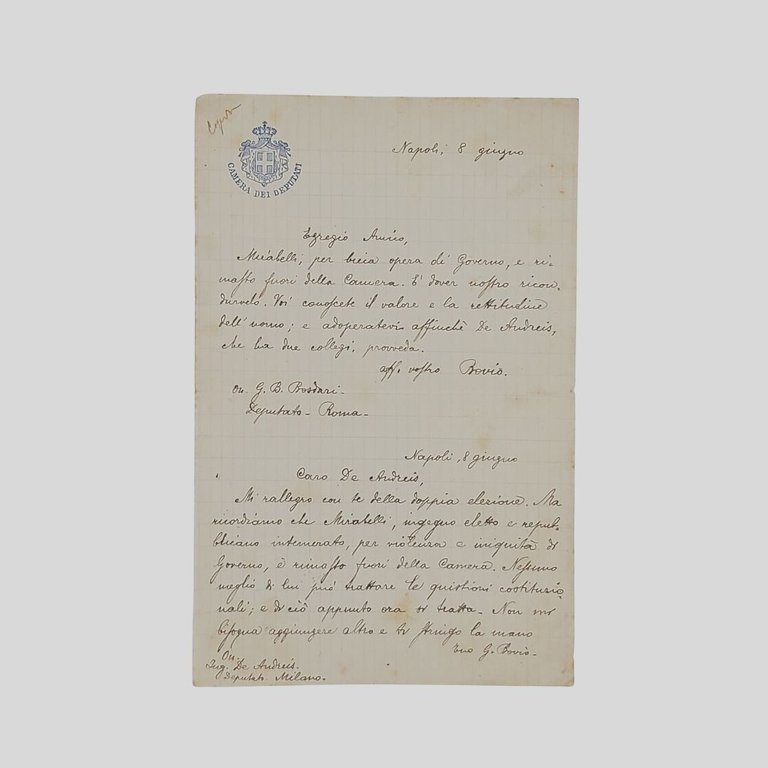 Copia
CAMERA DEI DEPUTATI
Napoli, 8 giugno
Egregio Amico,
Mirabelli, per bieca opera di Governo, è ri-
masto fuori della Camera. E' dover nostro ricon-
durvelo. Voi conoscete il valore e la rettitudine
dell'uomo; e adoperatevi affinchè De Andreis,
che ha due collegi, provveda.
aff. vostro Bovio.
On. G. B. Bosdari-
Deputato- Roma-
Napoli, 8 giugno
Caro De Andreis,
Mi rallegro con te della doppia elezione. Ma
ricordiamo che Mirabelli, ingegno eletto e repub-
blicano intemerato, per violenza e iniquità di
Governo, è rimasto fuori della Camera. Nessuno
meglio di lui può trattare le quistioni costituzio
nali; e di ciò appunto ora si tratta- Non mi
bisogna aggiungere altro e ti stringo la mano
tuo G. Bovio-
On.
Ing. De Andreis.
Deputato Milano.